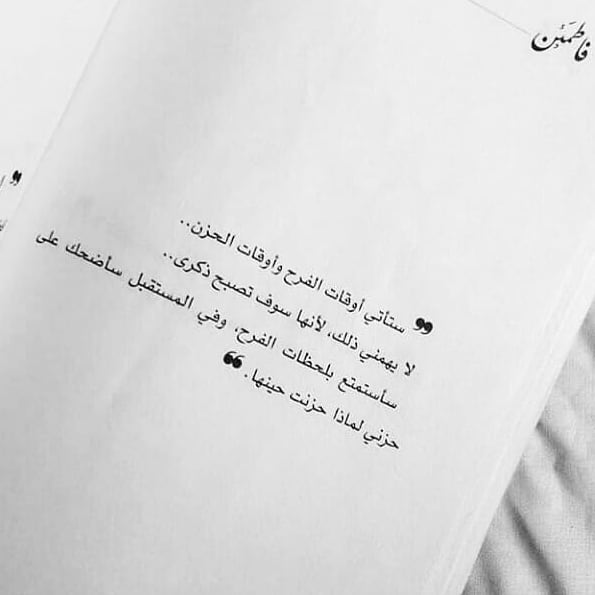 فاطمَئن
❞ ستأتي أوقات الفرح وأوقات الحزن..
لا يهمني ذلك، لأنها سوف تصبح ذكرى..
سأستمتع بلحظات الفرح، وفي المستقبل سأضحك على
حزني لماذا حزنت حينها. ❝